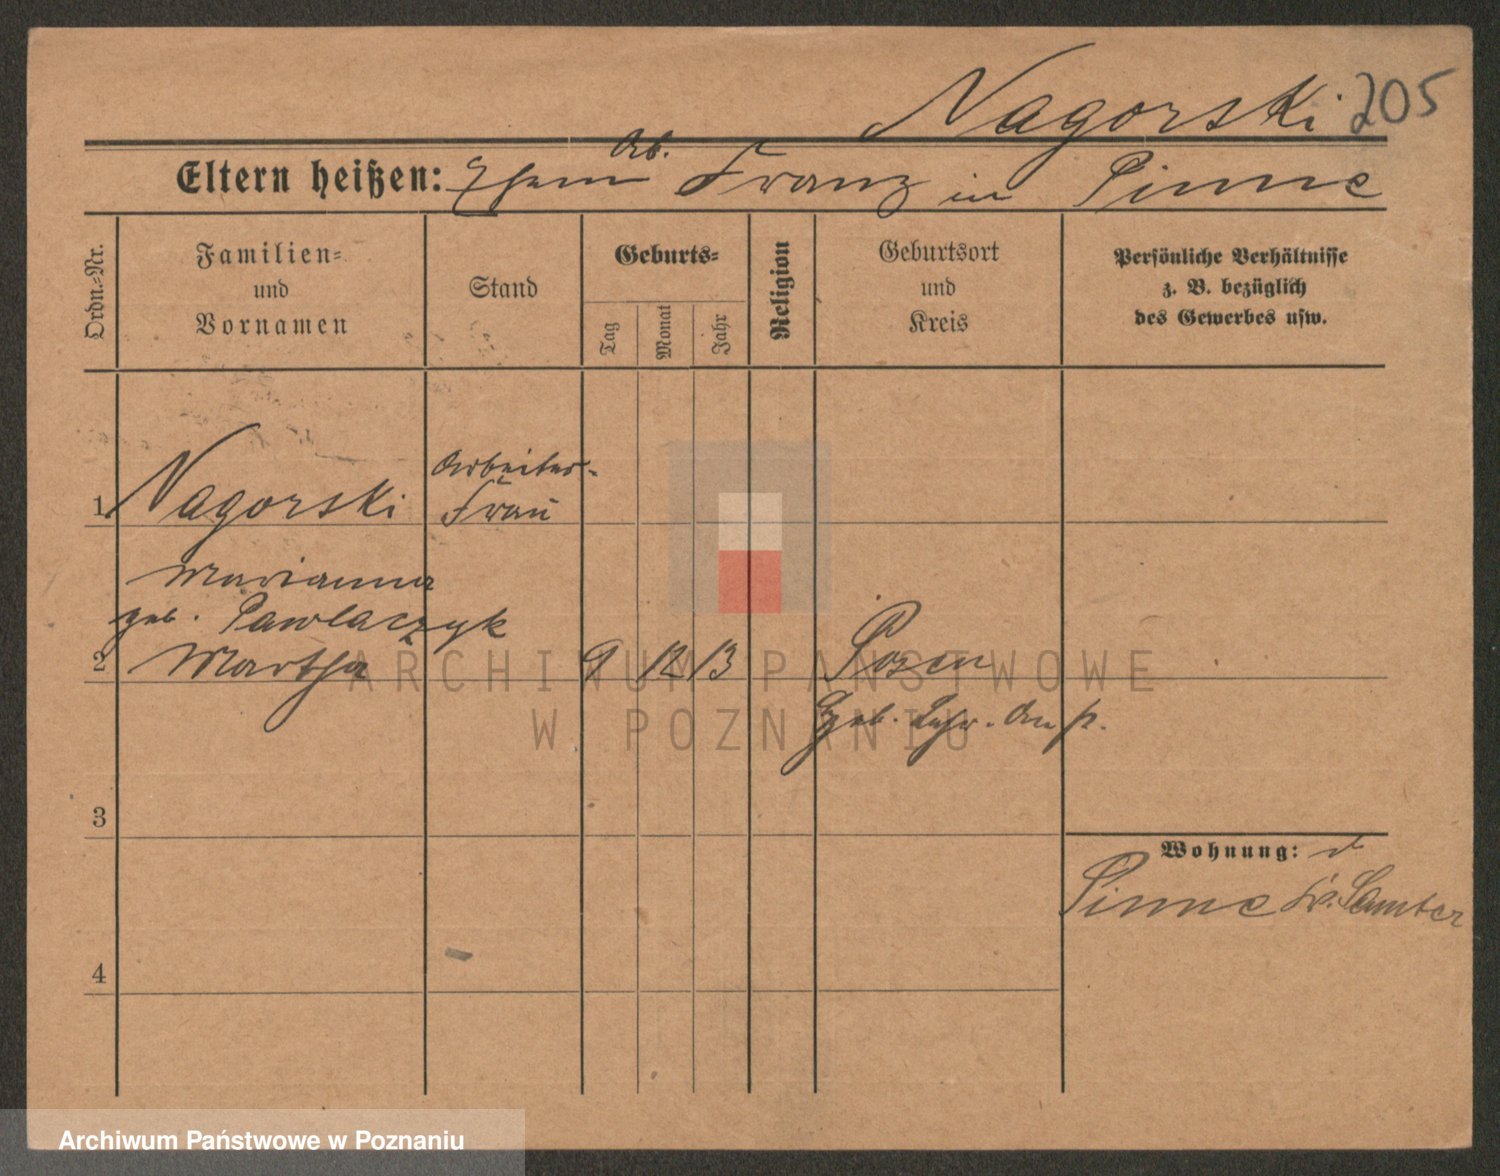 Nagorski 205
Eltern heißen: Ehem. Arb. Franz in Pinne
Ordn.-Nr.
Familien-
und
Vornamen
Stand
Geburts-
Tag
Monat
Jahr
Religion
Geburtsort
und
Kreis
Persönliche Verhältnisse
z. B. bezüglich
des Gewerbes usw.
1 Nagorski Arbeiter-
Frau
Marianna
geb. Pawlaczyk
2 Martha 9 12 13 Posen
Geb.
3
Wohnung:
Pinne Kr. Samter
4
ARCHIWUM PAŃSTWOWE
W POZNANIU
Archiwum Państwowe w Poznaniu